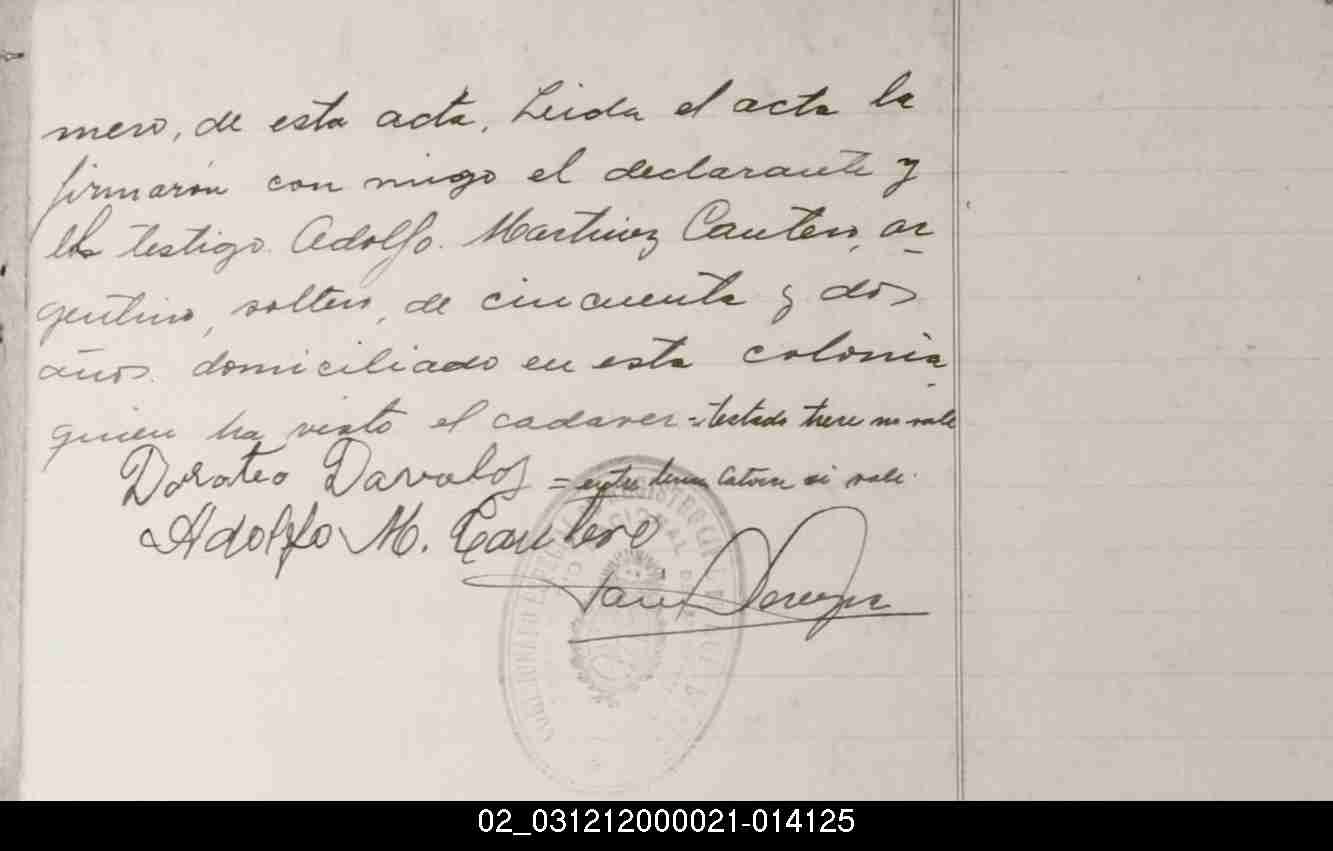 mero, de esta acta, Leida el acta la
firmarón con migo el declarante y
el testigo. Adolfo. Martinez Cantero, ar
gentino, soltero, de cincuenta y dos
años. domiciliado en esta colonia
quien ha visto el cadaver = testado trece no vale
Doroteo Davalos = entre lineas catorce si vale.
Adolfo M. Cantero
02_031212000021-014125